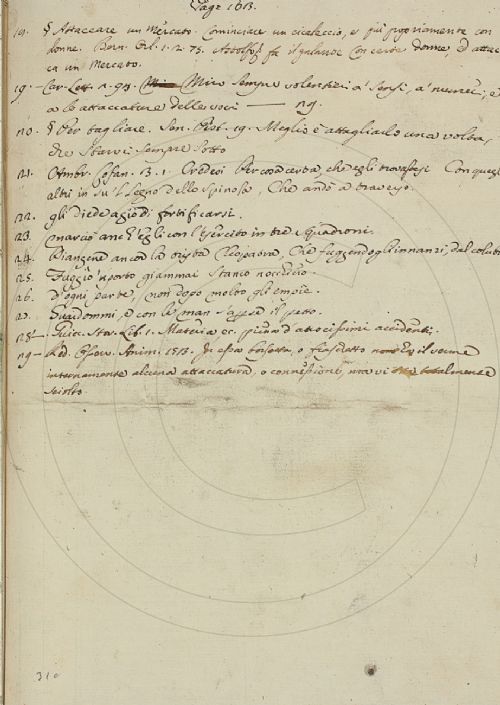 Pag. 1613.
19. § Attaccare un Mercato. Cominciare un cicaleccio, e più propriamente con
donne. Bern. Orl. 1. 2. 73. Astolfo fa il galante con certe donne, ed attac
ca un Mercato.
19 — Car. Lett. 1. 93. Miro sempre volentieri a' sensi, a' numeri, e
a le attaccature delle voci — ng.
20. § Per tagliare. San. Meglio è attagliarlo una volta,
che starvi sempre sotto
21. Ambr. Cofan. 13. 1. Credevi per cosa certa, che egli trovassesi con quegli
altri in su'l legno dello Spinola, che andò a traverso.
22. gli diede agio di fortificarsi.
23. marciò anch'egli con l'esercito in tre squadroni.
24. Piangene ancor la trista Cleopatra, che fuggendogli innanzi, dal colubro
25. Fuggìo 'n porto giammai stanco nocchiero.
26. D'ogni parte, non dopo molto gli empie.
27. Guardommi, e con le man s'aperse il petto.
28 — Guicc. Sto. Lib. 1. Materia ec. piena d'atrocissimi accidenti.
29 — Red. Osserv. Anim. 1513. In essa borsetta, o fiaschetto il verme
internamente alcuna attaccatura, o connessione, ma vi totalmente
sciolto.
310